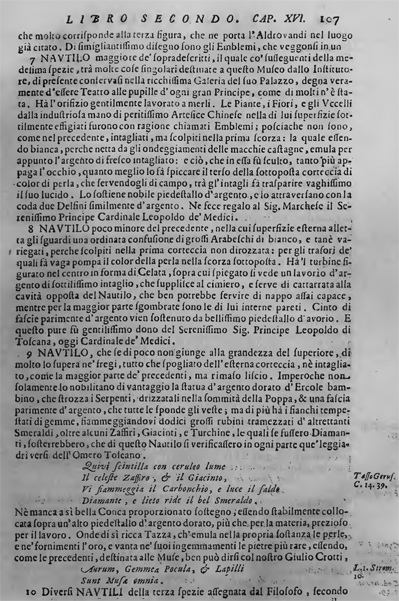 LIBRO SECONDO. CAP. XVI. 107
che molto corrisponde alla terza figura, che ne porta l'Aldrovandi nel luogo
già citato. Di simigliantissimo disegno sono gli Emblemi, che veggonsi in un
7 NAVTILO maggiore de' sopradescritti, il quale co' susseguenti della me-
desima spezie, trà molte cose singolari destinate a questo Museo dallo Institutó-
re, di presente conservasi nella ricchissima Galeria del suo Palazzo, degna vera-
mente d'essere Teatro alle pupille d'ogni gran Principe, come di molti n'è sta-
ta. Hà l'orifizio gentilmente lavorato a merli. Le Piante, i Fiori, e gli Vccelli
dalla industriosa mano di peritissimo Artefice Chinese nella di lui superfizie sot-
tilmente effigiati furono con ragione chiamati Emblemi; posciache non sono,
come nel precedente, intagliati, ma scolpiti nella prima scorza: la quale essen-
do bianca, perche netta da gli ondeggiamenti delle macchie castagne, emula per
appunto l'argento di fresco intagliato: e ciò, che in essa fù sculto, tanto più ap-
paga l'occhio, quanto meglio lo fà spiccare il terso della sottoposta corteccia di
color di perla, che servendogli di campo, trà gl'intagli fà trasparire vaghissimo
il suo lucido. Lo sostiene nobile piedestallo d'argento, e lo attraversano con la
coda due Delfini similmente d'argento. Ne fece regalo al Sig. Marchese il Se-
renissimo Principe Cardinale Leopoldo de' Medici.
8 NAVTILO poco minore del precedente, nella cui superfizie esterna allet-
ta gli sguardi una ordinata confusione di grossi Arabeschi di bianco, e tanè va-
riegati, perche scolpiti nella prima corteccia non dirozzata: per gli trafori de'
quali fà vaga pompa il color della perla nella scorza sottoposta. Hà'l turbine fi-
gurato nel centro in forma di Celata, sopra cui spiegato si vede un lavorio d'ar-
gento di sottilissimo intaglio, che supplisce al cimiero, e serve di cattarrata alla
cavità opposta del Nautilo, che ben potrebbe servire di nappo assai capace,
mentre per la maggior parte sgombrate sono le di lui interne pareti. Cinto di
fascie parimente d'argento vien sostenuto da bellissimo piedestallo d'avorio. E
questo pure fù gentilissimo dono del Serenissimo Sig. Principe Leopoldo di
Toscana, oggi Cardinale de' Medici.
9 NAVTILO, che se di poco non giunge alla grandezza del superiore, di
molto lo supera ne' fregi, tutto che spogliato dell'esterna corteccia, nè intaglia-
to, come la maggior parte de' precedenti, ma rimaso liscio. Imperoche non
solamente lo nobilitano di vantaggio la statua d'argento dorato d'Ercole bam-
bino, che strozza i Serpenti, drizzatali nella sommità della Poppa, & una fascia
parimente d'argento, che tutte le sponde gli veste; ma di più hà i fianchi tempe-
stati di gemme, fiammeggiandovi dodici grossi rubini tramezzati d'altrettanti
Smeraldi, oltre alcuni Zaffiri, Giacinti, e Turchine, le quali se fussero Diaman-
ti, sosterrebbero, che di questo Nautilo si verificassero in ogni parte que' leggia-
dri versi dell'Omero Toscano.
Quivi scintilla con ceruleo lume
Il celeste Zaffiro, & il Giacinto,
Vi fiammeggia il Carbonchio, e luce il saldo
Diamante, e lieto ride il bel Smeraldo.
Tasso Gerus.
C. 14. 39.
Nè manca a sì bella Conca proporzionato sostegno; essendo stabilmente collo-
cata sopra un'alto piedestallo d'argento dorato, più che per la materia, prezioso
per il lavoro. Onde di sì ricca Tazza, ch'emula nella propria sostanza le perle,
e ne' fornimenti l'oro, e vanta ne' suoi ingemmamenti le pietre più rare, essendo,
come le precedenti, destinata alle Muse, ben può dirsi col nostro Giulio Crotti,
Aurum, Gemmea Pocula, & Lapilli
Sunt Musæ omnia.
L. 1. Strom.
10.
10 Diversi NAVTILI della terza spezie assegnata dal Filosofo, secondo